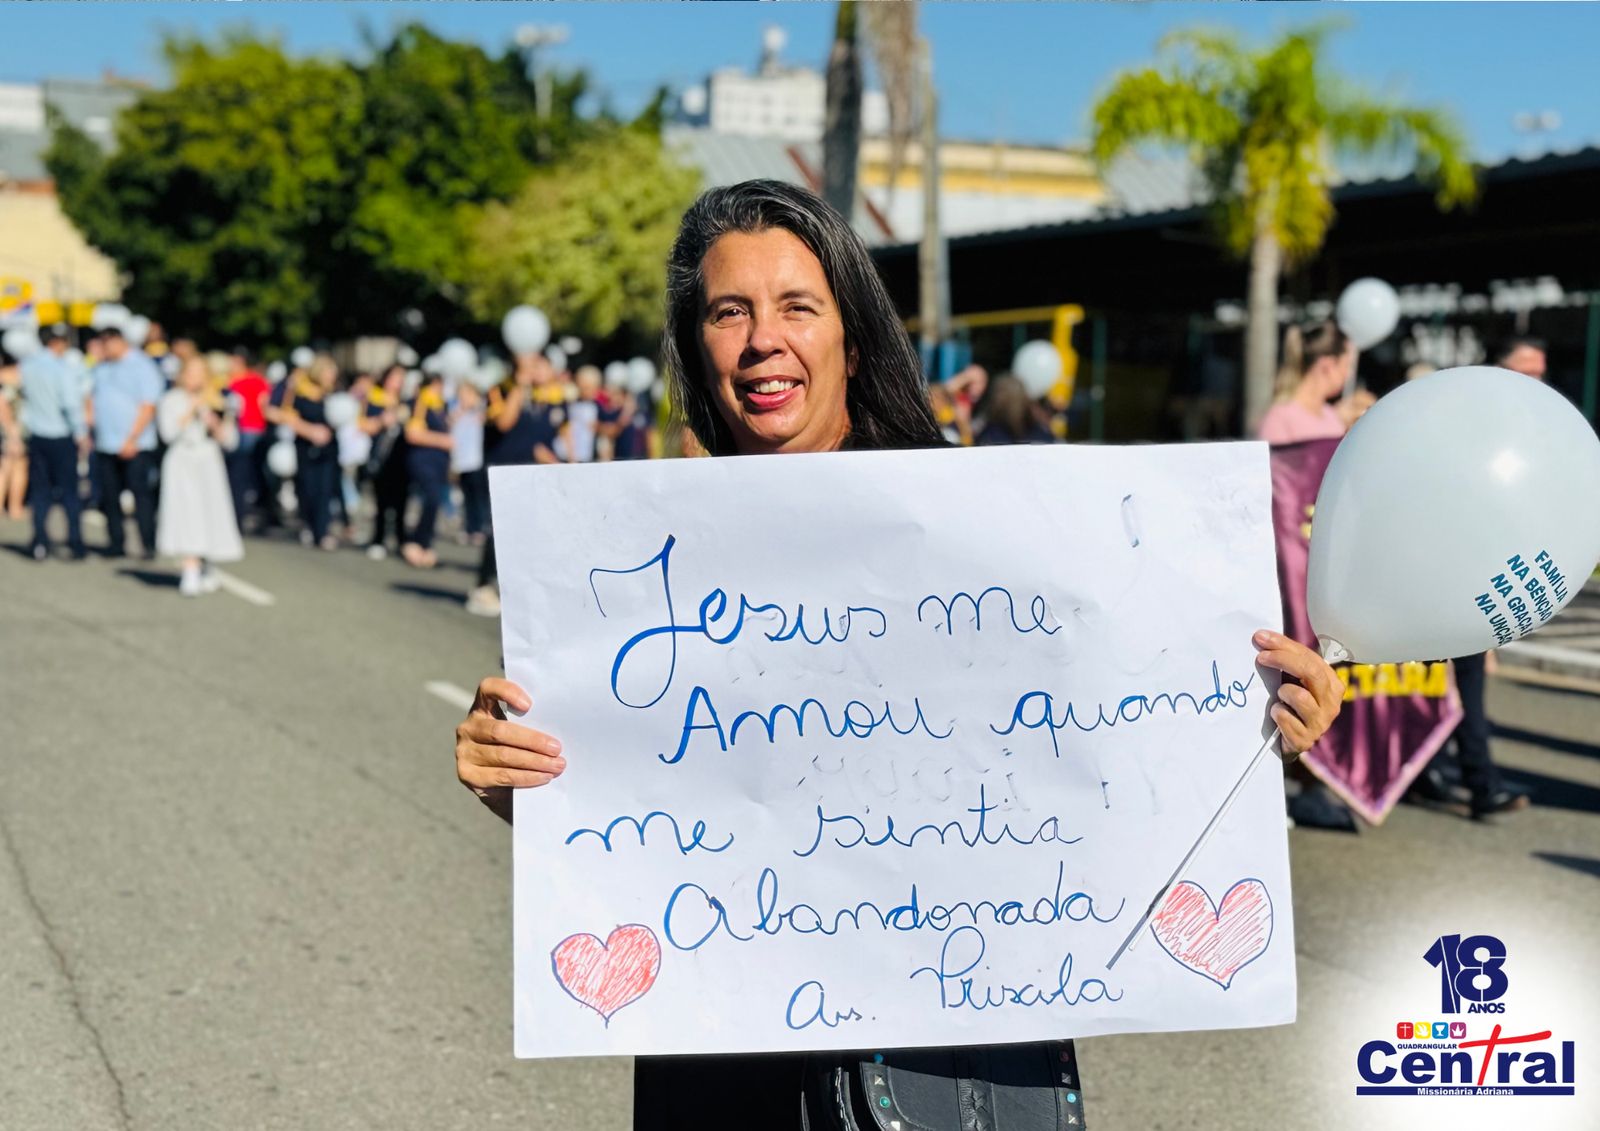 Jesus me
Amou quando
me sentia
Abandonada
Ass. Priscila
FAMÍLIA
NA BÊNÇÃO
NA GRAÇA
NA UNÇÃO
18
ANOS
QUADRANGULAR
Central
Missionária Adriana